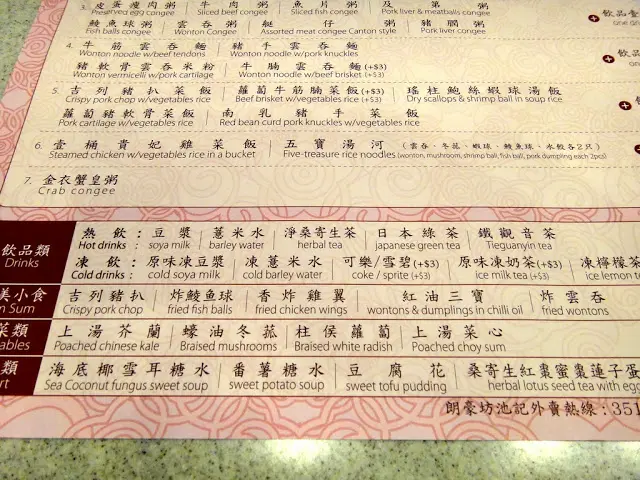 3. 皮蛋瘦肉粥 牛肉粥 魚片粥 及第粥
Preserved egg congee Sliced beef congee Sliced fish congee Pork liver & meatballs congee
鯪魚球粥 雲吞粥 艇仔粥 豬膶粥
Fish balls congee Wonton Congee Assorted meat congee Canton style Pork liver congee
4. 牛筋雲吞麵 豬手雲吞麵
Wonton noodle w/beef tendons Wonton noodle w/pork knuckles
豬軟骨雲吞米粉 牛腩雲吞麵(+$3)
Wonton vermicelli w/pork cartilage Wonton noodle w/beef brisket (+$3)
5. 吉列豬扒菜飯 蘿蔔牛筋腩菜飯(+$3) 瑤柱鮑絲蝦球湯飯
Crispy pork chop w/vegetables rice Beef brisket w/vegetables rice(+$3) Dry scallops & shrimp ball in soup rice
蘿蔔豬軟骨菜飯 南乳豬手菜飯
Pork cartilage w/vegetables rice Red bean curd pork knuckles w/vegetables rice
6. 壹桶貴妃雞菜飯 五寶湯河 (雲吞、冬菇、蝦球、鯪魚球、水餃各2只)
Steamed chicken w/vegetables rice in a bucket Five-treasure rice noodles (wonton, mushroom, shrimp ball, fish ball, pork dumpling each 2pcs)
7. 金衣蟹皇粥
Crab congee
飲品類
Drinks
熱飲: 豆漿 薏米水 淨桑寄生茶 日本綠茶 鐵觀音茶
Hot drinks: soya milk barley water herbal tea japanese green tea Tieguanyin tea
凍飲: 原味凍豆漿 凍薏米水 可樂/雪碧(+$3) 原味凍奶茶(+$3) 凍檸檬茶
Cold drinks: cold soya milk cold barley water coke / sprite (+$3) ice milk tea (+$3) ice lemon te
美小食
m Sum
吉列豬扒 炸鯪魚球 香炸雞翼 紅油三寶 炸雲吞
Crispy pork chop fried fish balls fried chicken wings wontons & dumplings in chilli oil fried wontons
菜類
ables
上湯芥蘭 蠔油冬菇 柱侯蘿蔔 上湯菜心
Poached chinese kale Braised mushrooms Braised white radish Poached choy sum
類
rt
海底椰雪耳糖水 番薯糖水 豆腐花 桑寄生紅棗蜜棗蓮子蛋
Sea Coconut fungus sweet soup sweet potato soup sweet tofu pudding herbal lotus seed tea with egg
朗豪坊池記外賣熱線:351